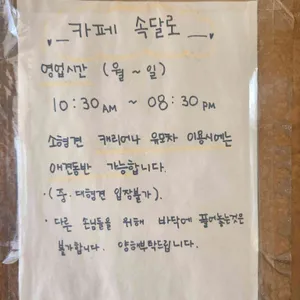 카페 속달로
영업시간 (월 ~ 일)
10:30 AM ~ 08:30 PM
소형견 캐리어나 유모차 이용시에는
애견동반 가능합니다.
·(중.대형견 입장불가).
· 다른 손님들을 위해 바닥에 풀어놓는것은
불가합니다. 양해부탁드립니다.